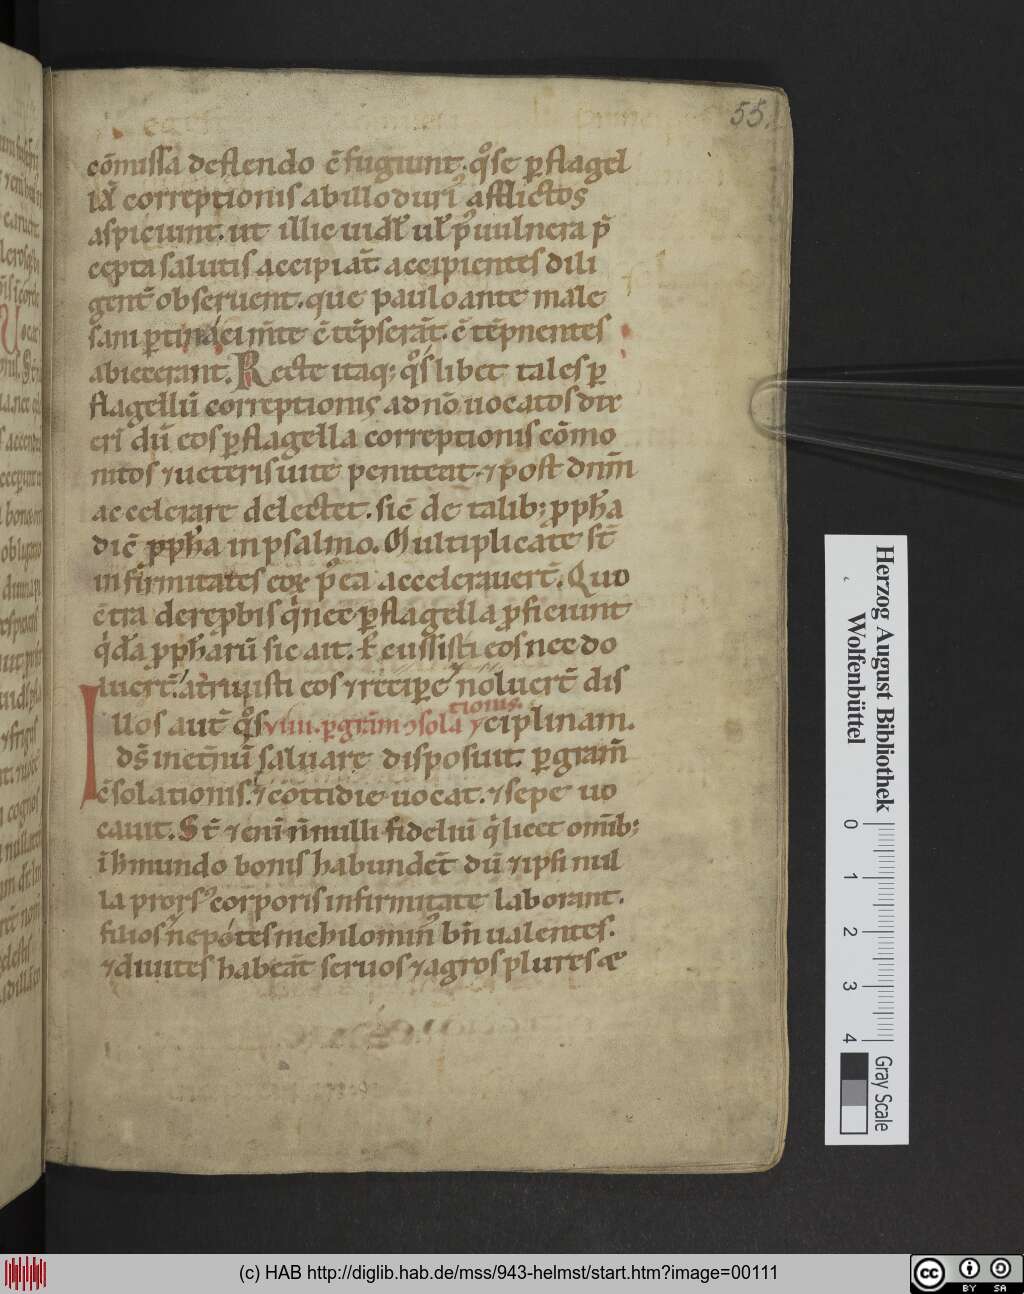 55.
cōmissa deflendo c̄fugiunt. qͦse ꝑflagel
lā correptionis abilloduriꝰ afflictos
aspiciunt. ut illic uidl̄ ul̄ p̄ uulnera p̄
cepta salutis accipiāt accipientes dili
gent̄ obseruent. que pauloante male
sani ꝑtinaci m̄te c̄tēpserāt. c̄tēpnentes
abiecerant. Recte itaq; qͦslibet tales ꝑ
flagellū correptionis ad nō uocatos dix
erī dū eos ꝑflagella correptionis cōmo
nitos ⁊ueteris uite peniteat. ⁊post dnm̄
accelerare delectet. sic̄ de talib; ꝓpha
dic̄ ꝓpha in psalmo. Multiplicate st̄
infirmitates eoꝝ p̄ea accelerauert̄. Quo
c̄tra derepbis qͥnec ꝑflagella ꝓficiunt
qͥdā ꝑ ꝓpharū sic ait. Ꝑcussisti eos nec do
luert̄. attriuisti eos ⁊recipeͤ noluert̄ dis
Illos aut̄ qͦs viiii. ꝑ grām ↄsola ciplinam.
tionis.
ds̄ inet̄nū saluare disposuit. ꝑ gram̄
c̄solationis. ⁊cōttidie uocat. ⁊sepe uo
cauit. St̄ ⁊enī n̄nulli fideliū qͥlicet om̄ib;
ī hͦmundo bonis habundēt dū ⁊ipsi nul
la prorsꝰ corporis infirmitate laborant.
filios nepotes nichilominꝰ bn̄ ualentes.
⁊diuites habeāt seruos ⁊agros plures æ
Herzog August Bibliothek
Wolfenbüttel
0 1 2 3 4
Gray Scale
(c) HAB http://diglib.hab.de/mss/943-helmst/start.htm?image=00111
cc BY SA